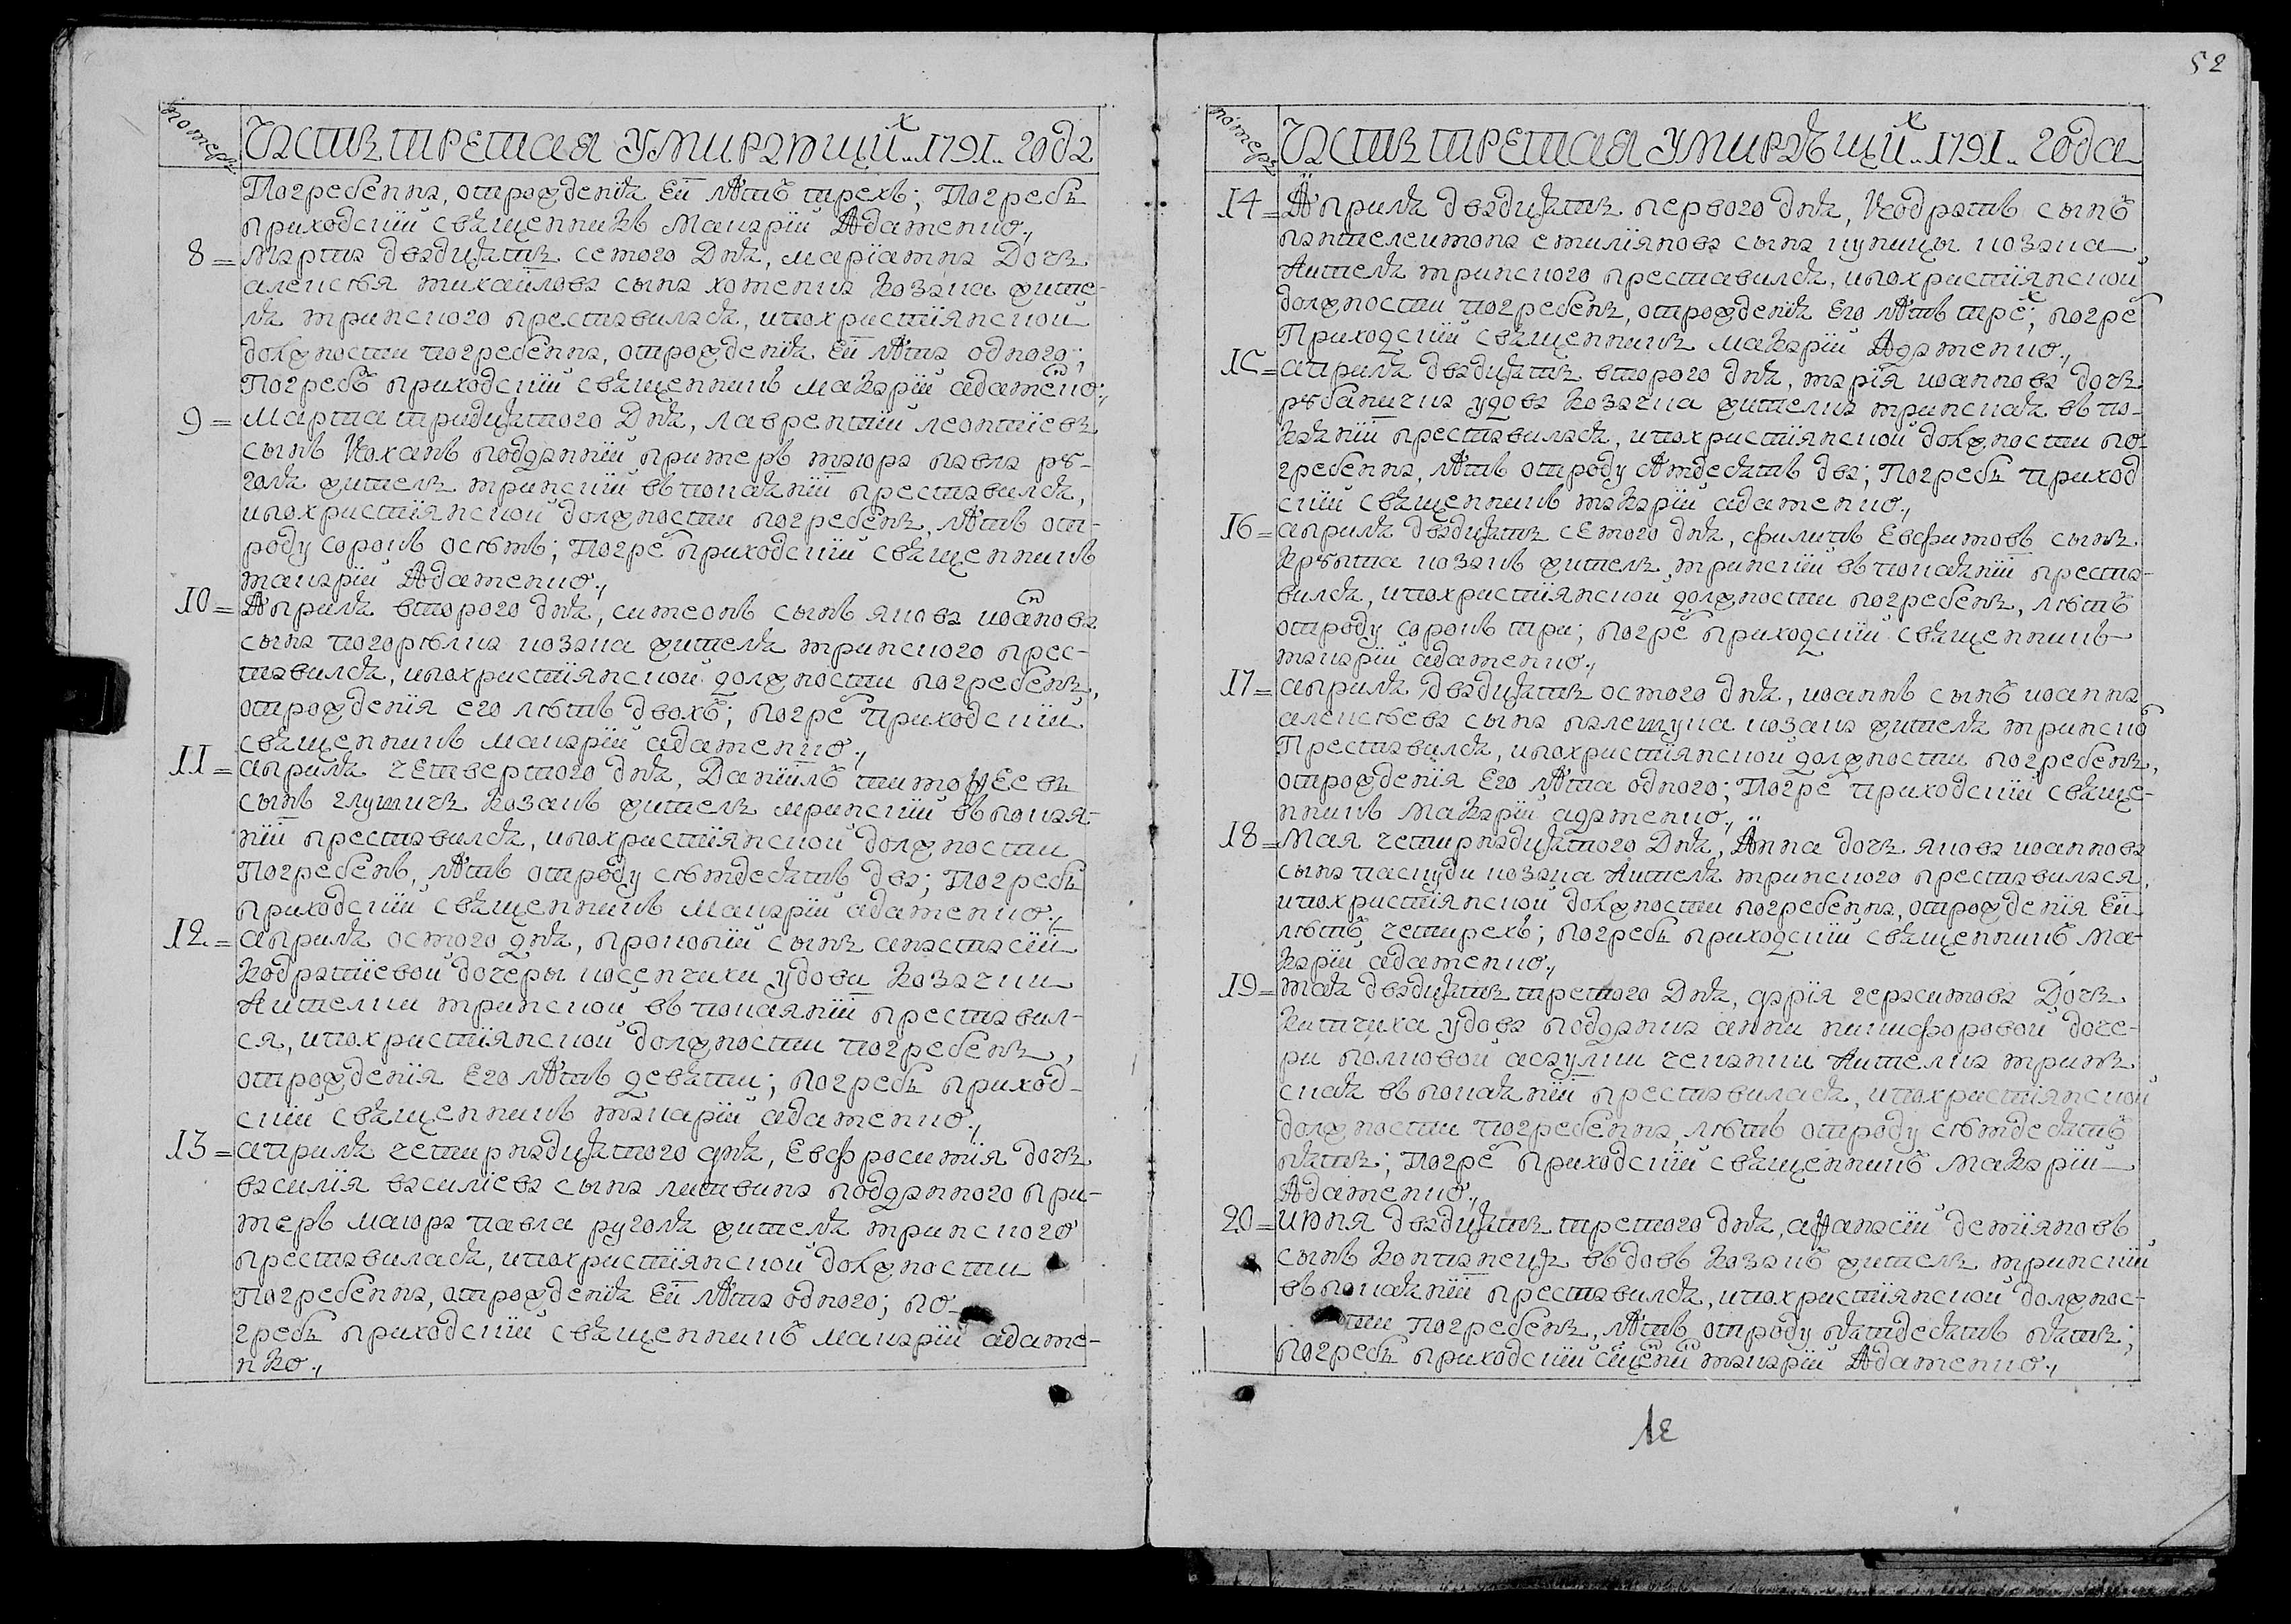 номеръ
Часть третая умирающихъ 1791 года
Погребенна, отрожденїя Ей лѣтъ трехъ; Погребъ
приходскїй свѧщенникъ Макарїй Адаменко,
8 = Марта двадцять семого Дня, марїамна Дочь
алексѣя михайлова сына хоменка козака жите-
ля мринского преставилася, ипохристїянской
должности погребенна, отрожденїя Ей лѣта одного;
Погребъ приходскїй свѧщенникъ макарїй адаменко,
9 = Марта тридцятого Дня, лаврентїй леонтїевъ
сынъ Коханъ подданнїй примеръ маюра павла рꙋ-
голя житель мринскїй въ покаянїй преставился,
ипохристїянской должности погребенъ, лѣтъ от-
роду сорокъ осѣмъ; Погре приходскїй свѧщенникъ
макарїй Адаменко,
10 = Априля второго дня, симеонъ сынъ якова иоаннова
сына погорѣлка козака жителя мринского прес-
тавился, ипохристїянской должности погребенъ,
отрожденїя его лѣтъ двохъ; погре приходскїй
свѧщенникъ макарїй адаменко,
11 = априля четвертого дня, Данїилъ тимоѳеевъ
сынъ глушичъ козакъ житель мринскїй въ покая-
нїй преставился, ипохристїянской должности
Погребенъ, лѣтъ отроду сѣмдесятъ два; Погребъ
приходскїй свѧщенникъ макарїй адаменко,
12 = априля осмого дня, прокопїй сынъ анастасїй
Кодратїевой дочеры косенчихи удови козачки
жителки мринской въ покаянїй преставил-
ся, ипохристїянской должности погребенъ,
отрожденїя Его лѣтъ девяти; погребъ приход-
скїй свѧщенникъ макарїй адаменко,
13 = априля четирнадцятого дня, Евфросимїя дочь
василїя василїева сына литвина подданного при-
меръ маюра павла руголя жителя мринского
преставилася, ипохристїянской должности
Погребенна, отрожденїя Ей лѣта одного; по-
гребъ приходскїй свѧщенникъ макарїй адаме-
нко,
52
номеръ
Часть третая умирающихъ 1791 года
14 = Априля двадцять первого дня, Кодратъ сынъ
пантелеимона емилїянова сына куницы козака
жителя мринского преставился, ипохристїянской
должности погребенъ, отрожденїя Его лѣтъ трех; погре
Приходскїй свѧщенникъ макарїй Адаменко,
15 = априля двадцять второго дня, марїя иоаннова дочь
рꙋбаничка удова козачка жителка мринская въ по-
каянїй преставилася, ипохристїянской должности по-
гребенна, лѣтъ отроду сѣмдесятъ два; Погребъ приход
скїй свѧщенникъ макарїй адаменко,
16 = априля двадцять сЕмого дня, филипъ Евфимовъ сынъ
Крꙋпта козакъ житель мринскїй въ покаянїй преста-
вился, ипохристїянской должности погребенъ, лѣтъ
отроду сорокъ три; погре приходскїй свѧщенникъ
макарїй адаменко,
17 = априля двадцять осмого дня, иоаннъ сынъ иоанна
алексѣева сына палемуна козака жителя мринско
Преставился, ипохристїянской должности погребенъ,
отрожденїя Его лѣта одного; Погре приходскїй свѧще-
нникъ макарїй адаменко,
18 = Мая четирнадцятого Дня, Анна дочь якова иоаннова
сына паскуди козака жителя мринского преставилася,
ипохристїянской должности погребенна, отрожденїя Ей
лѣтъ четирехъ; погребъ приходскїй свѧщенникъ Ма-
карїй адаменко,
19 = мая двадцять третого Дня, дарїя герасимова Дочь
Китчиха удова подданка анни никифоровой доче-
ри полковой асаулши чепанки жителка мрин
ская въ покаянїй преставилася, ипохристїянской
должности погребенна, лѣтъ отроду сѣмдесятъ
пять; Погре приходскїй свѧщенникъ Макарїй
Адаменко,
20 = июня двадцять третого дня, аѳанасїй демїяновъ
сынъ Контанецъ въдовъ козакъ житель мринскїй
въ покаянїй преставился, ипохристїянской должнос-
ти погребенъ, лѣтъ отроду пятдесятъ пять;
Погребъ приходскїй сщеникъ макарїй Адаменко,